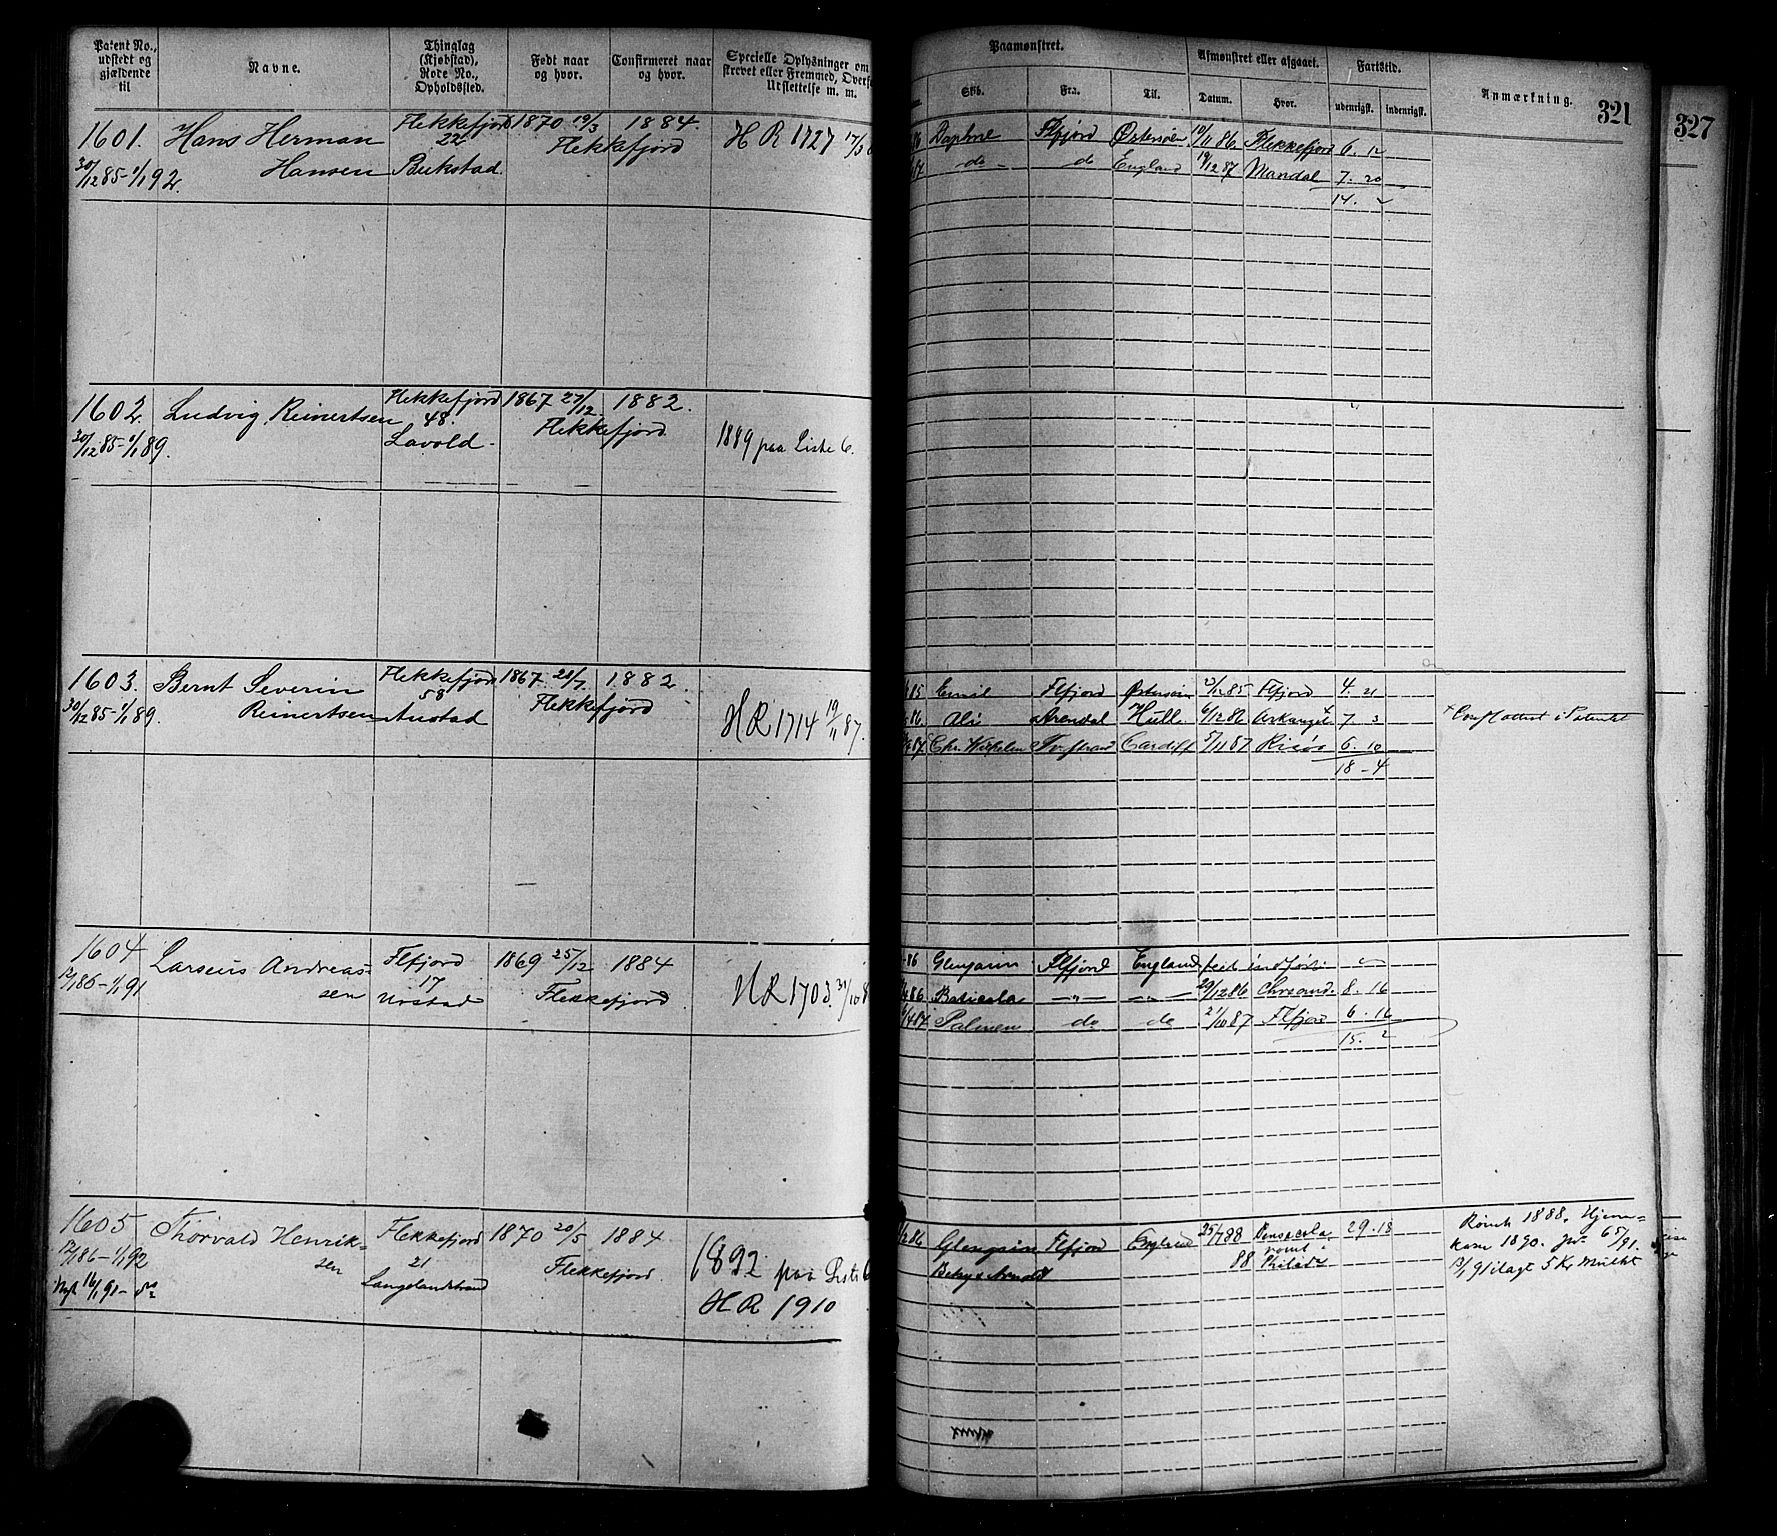 Patent No., udstedt og gjældende til
Navne.
Thinglag (Kjøbstad), Rode No., Opholdssted.
Født naar og hvor.
Confirmeret naar og hvor.
Specielle Oplysninger om
strevet eller Fremmed, Overf
Udslettelse m. m.
1601. Hans Herman Flekkefjord 1870 19/3 1884. H R 1727 17/3
22
Flekkefjord
30/12 85-1/1 92. Hansen Bukstad.
1602. Ludvig Reinertsen Flekkefjord 1867 27/12 1882.
48. Flekkefjord
30/12 85-1/1 89. Lavold. 1889 paa Liste 6.
1603. Bernt Severin Flekkefjord 1867 28/7 1882.
58 Flekkefjord
30/12 85-1/1 89. Reinertsen Austad HR 1714 19/11 87.
1604 Larseus Andreas- Flfjord 1869 25/12 1884
17
12/1 86-1/1 91 sen Urstad Flekkefjord HR 1703. 31/10 8
1605 Thorvald Henrik- Flekkefjord 1870 20/5 1884
12/1 86-1/1 92 sen 21 Flekkefjord. 1892 paa Liste 6
Nyt 16/1 91- Langelandstrand HR 1910
Paamønstret.
Afmønstret eller afgaaet.
Fartstid.
Anmærkning.
321
327
Skib.
Fra.
Til.
Datum.
Hvor.
udenrigst.
indenrigst.
86 Daphne Flfjord Østersøen 10/11 86 Flekkefjord 6. 12
87 -do- do England 19/12 87 Mandal 7. 20
14. 2
85 Emil Flfjord Østersøen 85 Flfjord 4. 21
86. Ali Arendal Hull 6/12 86 Arkangel 7. 3
87 Chr. Wilhelm Cardiff 5/11 87 Risør 6. 10
18 - 4
86 Glengairn Flfjord England
86 -"- -"- 29/12 86 Chrsand. 8. 16
87 Palmen do do 21/10 87 Flfjord 6. 16
15. 2
86 Glengairn Flfjord England 25/7 88 Pensacola 29. 13
rømt
Betsy & Arnold 88
Rømt 1888. Hjem-
kom 1890.
13/1 91 ilagt 5 Kr Mulkt